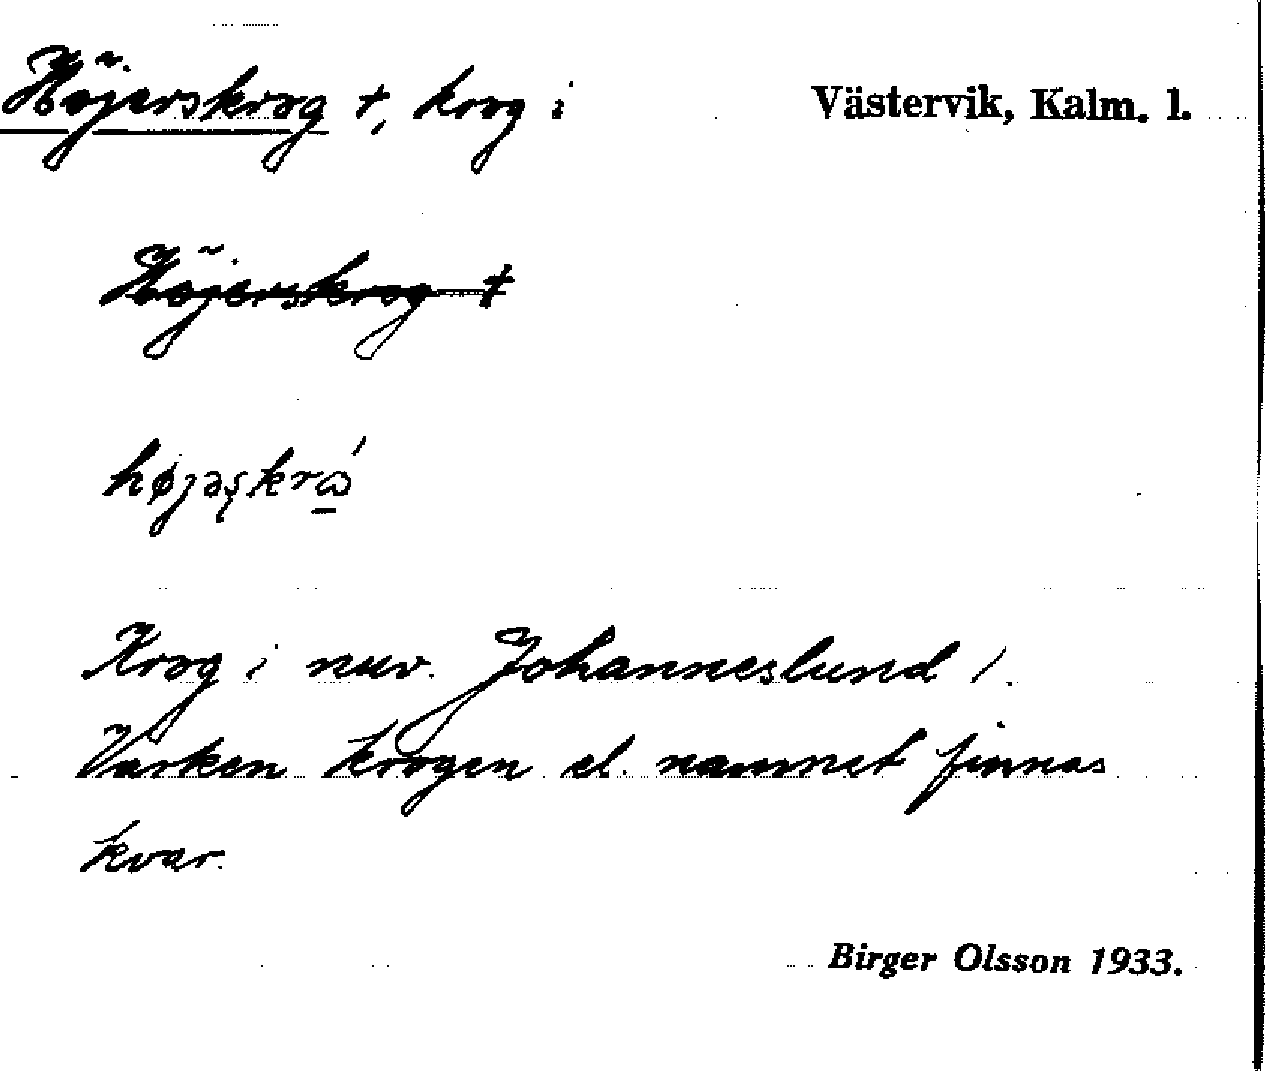 Höjerskrog †, krog i Västervik, Kalm. l.
Höjerskrog †
Krog i nuv. Johanneslund 1.
Varken krogen el. namnet finnas
kvar.
Birger Olsson 1933.